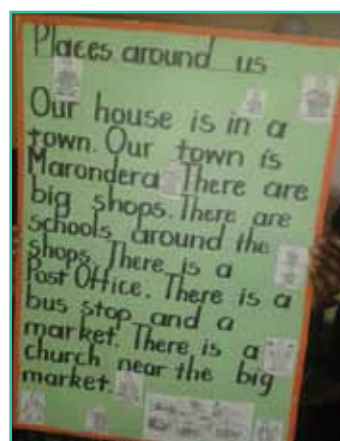 Places around us
Our house is in a
town. Our town is
Marondera. There are
big shops. There are
schools around the
shops. There is a
Post Office. There is a
bus stop and a
market. There is a
church near the big
market.